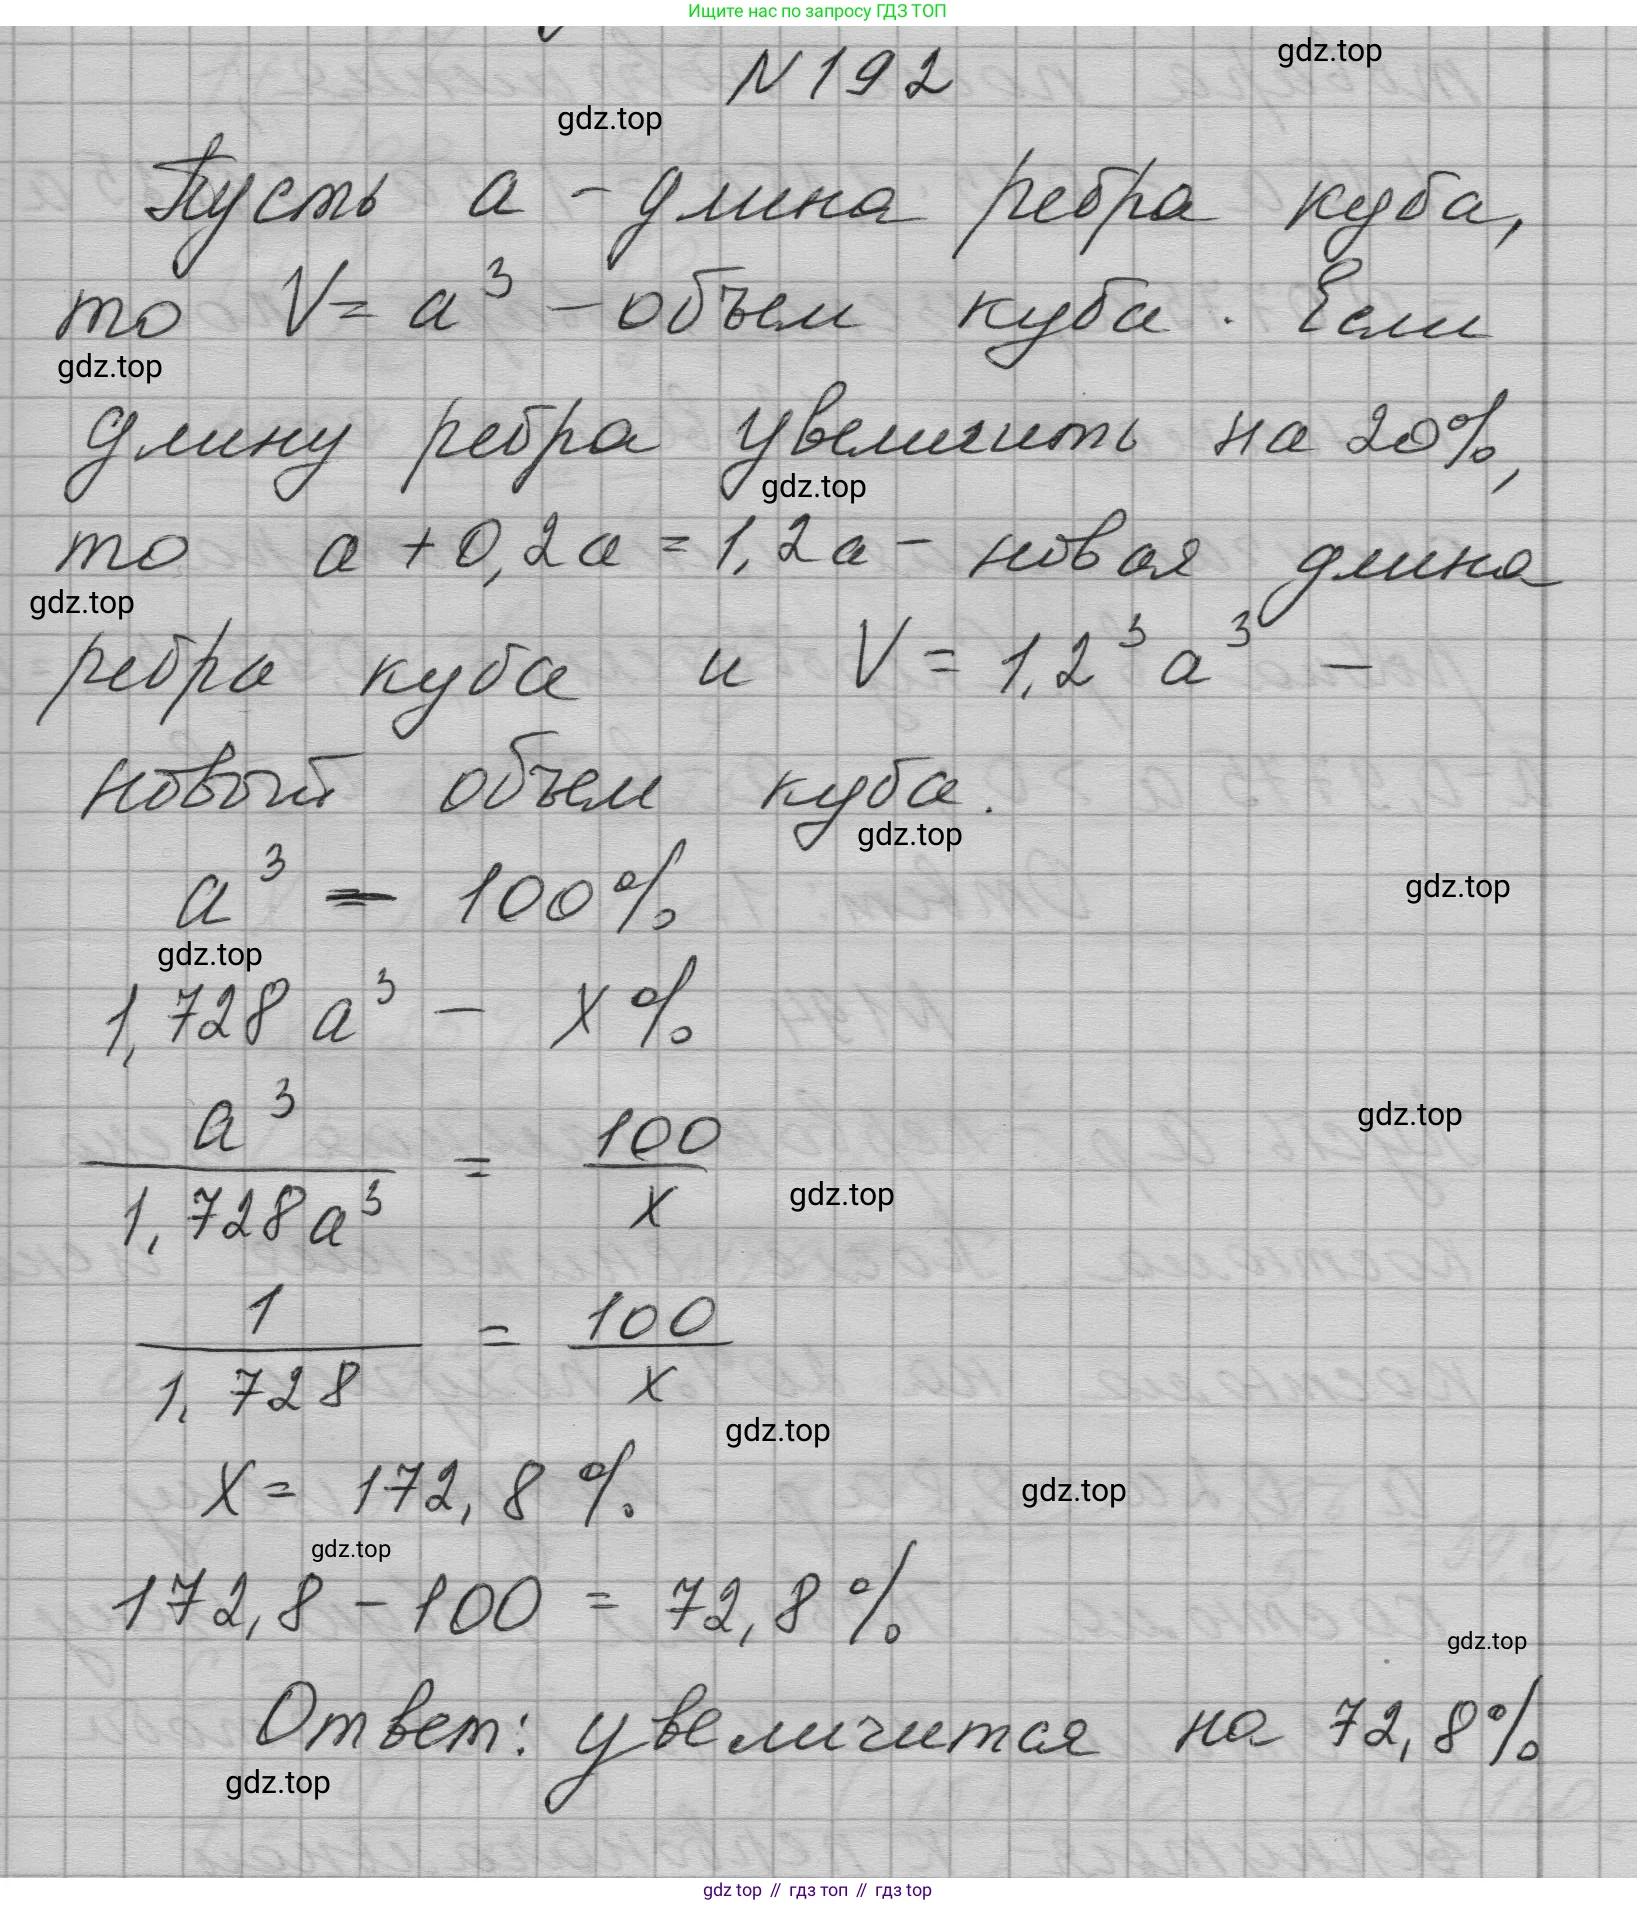 Ищите нас по запросу ГДЗ ТОП
gdz.top
N 192
gdz.top
Пусть a - длина ребра куба,
то V = a³ - объем куба. Если
gdz.top
длину ребра увеличить на 20%,
gdz.top
то a + 0,2a = 1,2a - новая длина
gdz.top
ребра куба и V = 1,2³a³ -
новый объем куба.
gdz.top
a³ - 100%
gdz.top
gdz.top
1,728a³ - x%
a³/1,728a³ = 100/x
gdz.top
gdz.top
1/1,728 = 100/x
gdz.top
x = 172,8%
gdz.top
gdz.top
172,8 - 100 = 72,8%
gdz.top
Ответ: увеличится на 72,8%
gdz.top
gdz top // гдз топ // гдз top